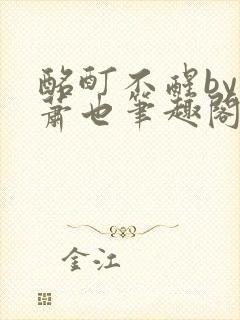 酩酊不醒by
萧也笔趣阁
金江